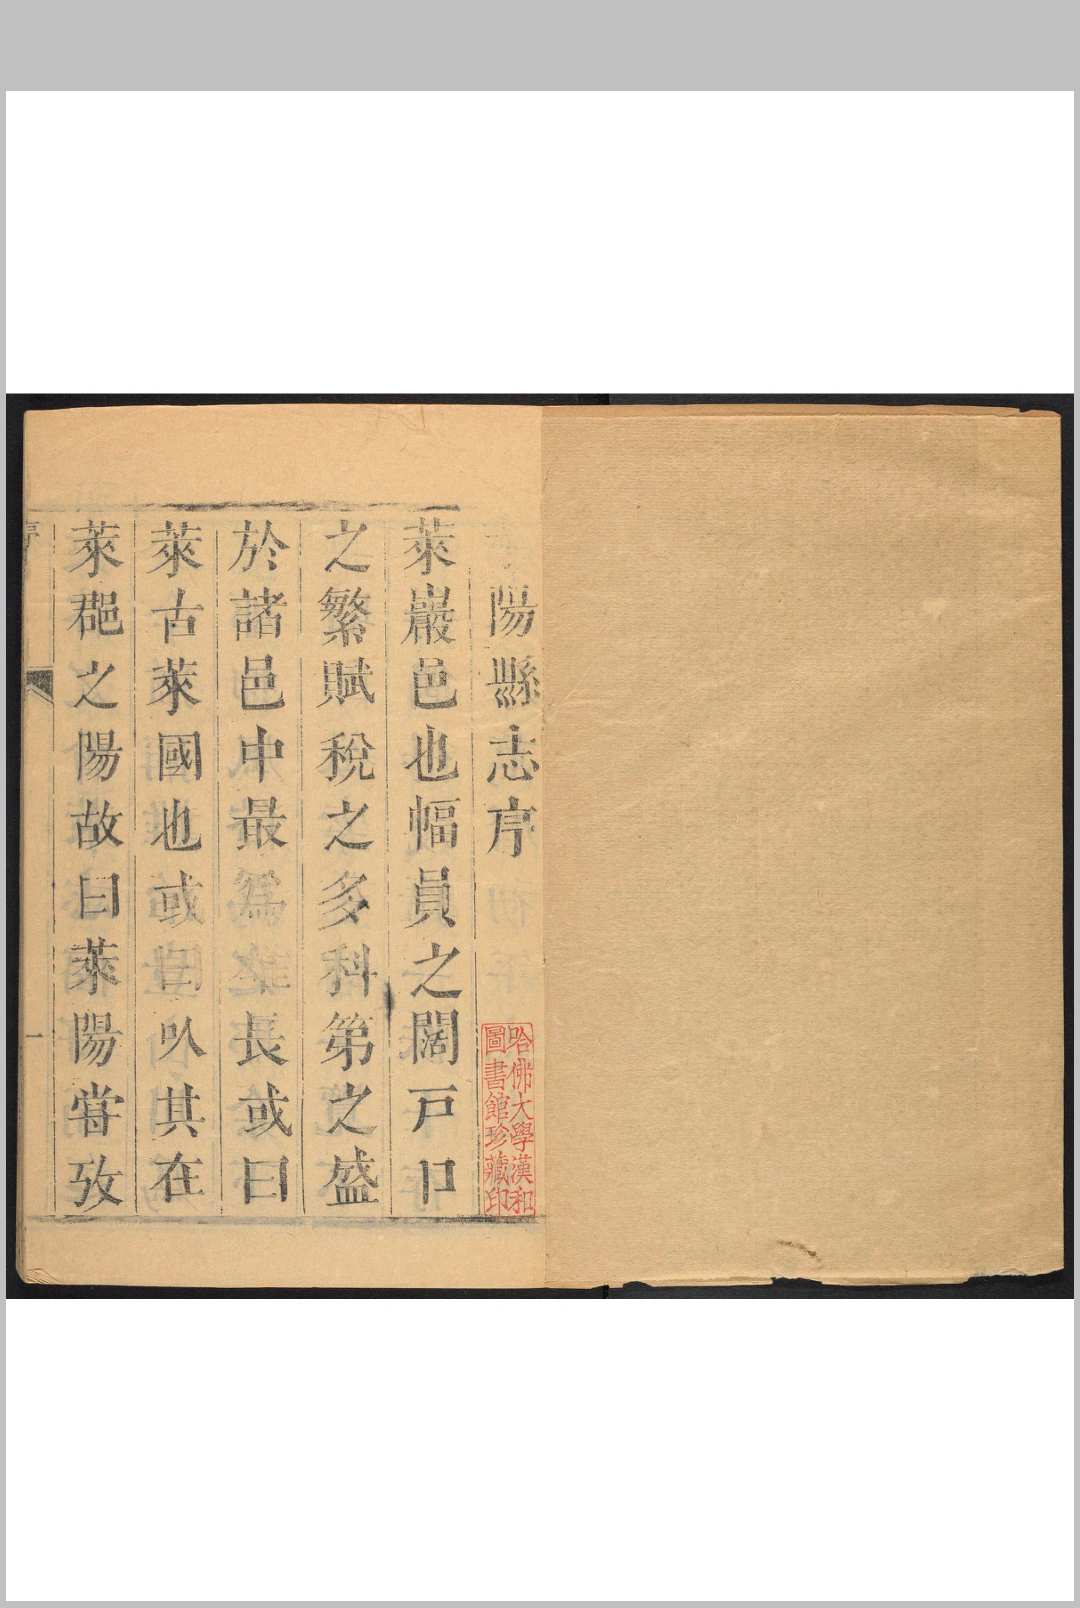 陽縣志序
萊巖邑也幅員之闊戸口
之繁賦稅之多科第之盛
於諸邑中最爲望長或曰
萊古萊國也或曰以其在
萊郡之陽故曰萊陽嘗攷
序
一
哈佛大學漢和
圖書館珍藏印